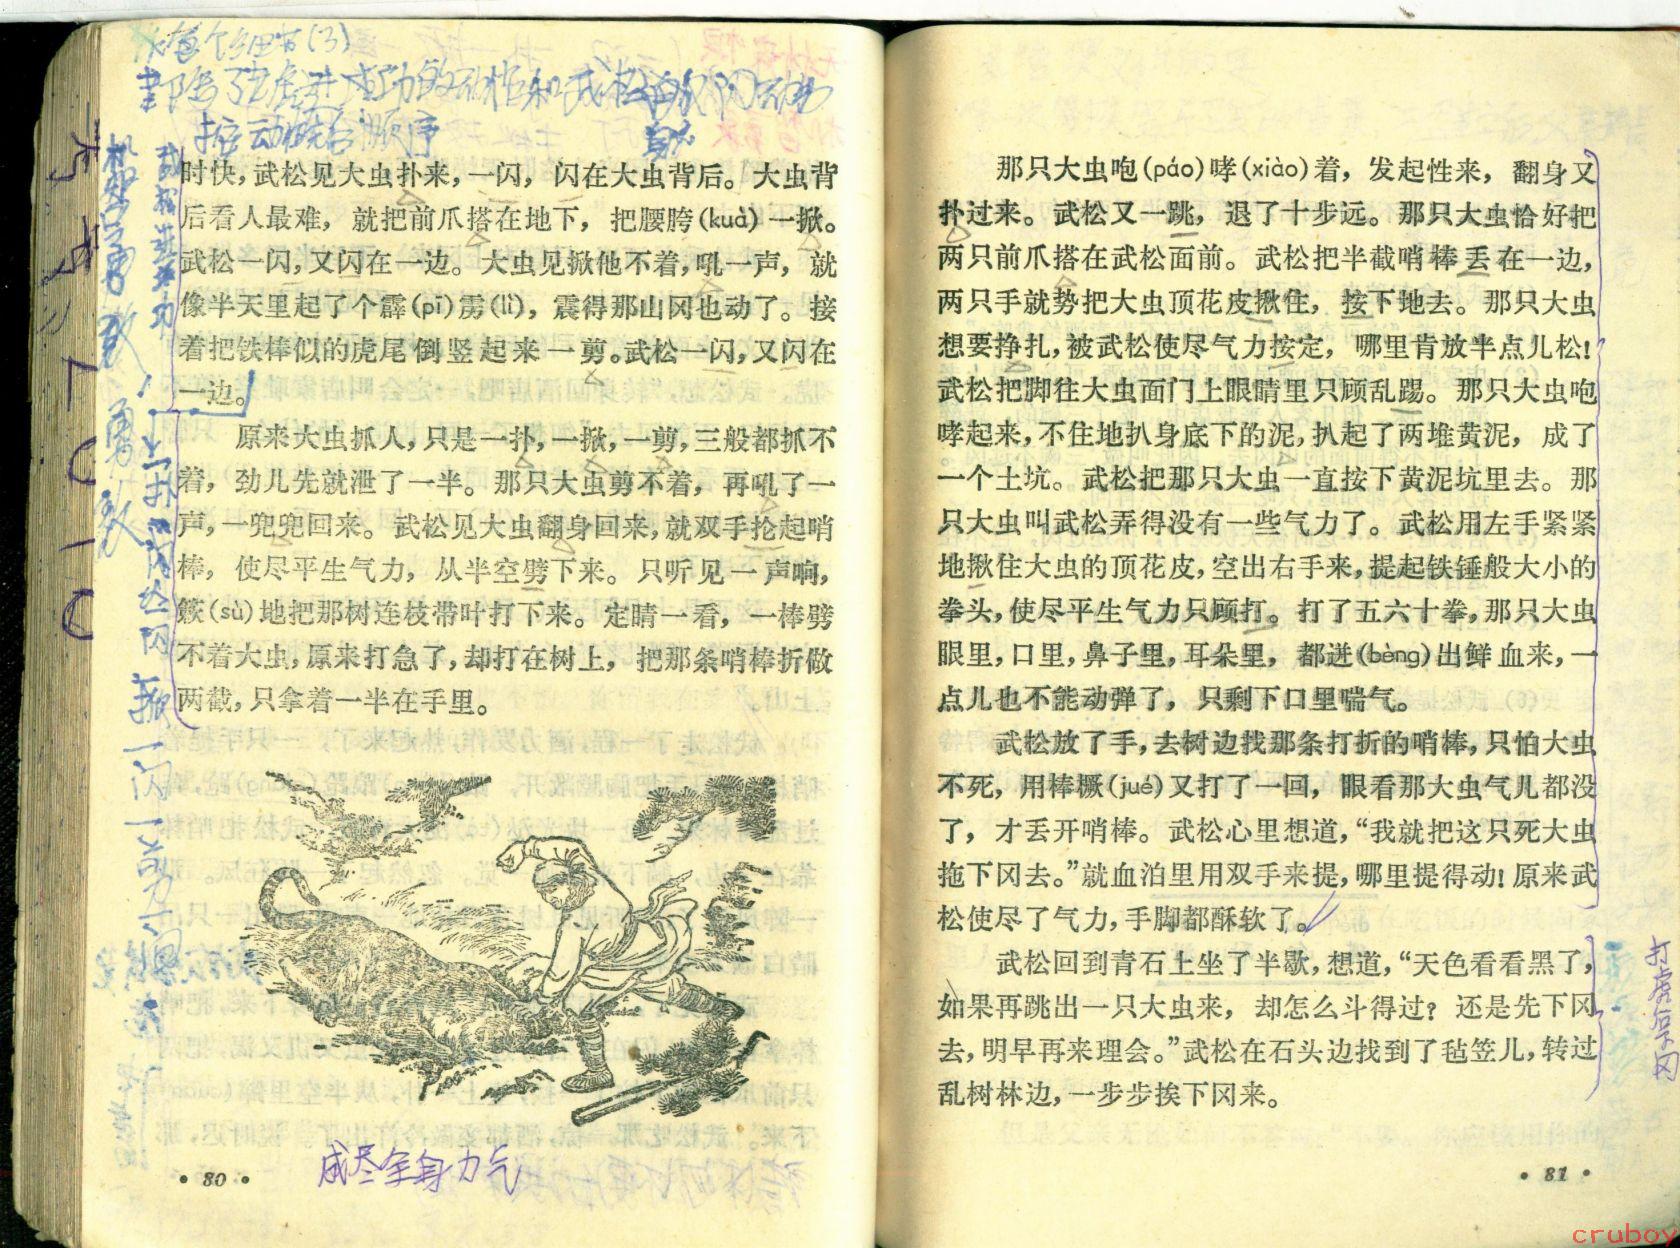 时快，武松见大虫扑来，一闪，闪在大虫背后。大虫背
后看人最难，就把前爪搭在地下，把腰胯(kuà)一掀。
武松一闪，又闪在一边。大虫见掀他不着，吼一声，就
像半天里起了个霹(pī)雳(lì)，震得那山冈也动了。接
着把铁棒似的虎尾倒竖起来一剪。武松一闪，又闪在
一边。
原来大虫抓人，只是一扑，一掀，一剪，三般都抓不
着，劲儿先就泄了一半。那只大虫剪不着，再吼了一
声，一兜兜回来。武松见大虫翻身回来，就双手抡起哨
棒，使尽平生气力，从半空劈下来。只听见一声响，
簌(sù)地把那树连枝带叶打下来。定睛一看，一棒劈
不着大虫，原来打急了，却打在树上，把那条哨棒折做
两截，只拿着一半在手里。
尽全身力气
• 80 •
那只大虫咆(páo)哮(xiào)着，发起性来，翻身又
扑过来。武松又一跳，退了十步远。那只大虫恰好把
两只前爪搭在武松面前。武松把半截哨棒丢在一边，
两只手就势把大虫顶花皮揪住，按下地去。那只大虫
想要挣扎，被武松使尽气力按定，哪里肯放半点儿松！
武松把脚往大虫面门上眼睛里只顾乱踢。那只大虫咆
哮起来，不住地扒身底下的泥，扒起了两堆黄泥，成了
一个土坑。武松把那只大虫一直按下黄泥坑里去。那
只大虫叫武松弄得没有一些气力了。武松用左手紧紧
地揪住大虫的顶花皮，空出右手来，提起铁锤般大小的
拳头，使尽平生气力只顾打。打了五六十拳，那只大虫
眼里，口里，鼻子里，耳朵里，都迸(bèng)出鲜血来，一
点儿也不能动弹了，只剩下口里喘气。
武松放了手，去树边找那条打折的哨棒，只怕大虫
不死，用棒橛(jué)又打了一回，眼看那大虫气儿都没
了，才丢开哨棒。武松心里想道，“我就把这只死大虫
拖下冈去。”就血泊里用双手来提，哪里提得动！原来武
松使尽了气力，手脚都酥软了。
武松回到青石上坐了半歇，想道，“天色看看黑了，
如果再跳出一只大虫来，却怎么斗得过？还是先下冈
去，明早再来理会。”武松在石头边找到了毡笠儿，转过
乱树林边，一步步挨下冈来。
打虎后下冈
• 81 •
cruboy